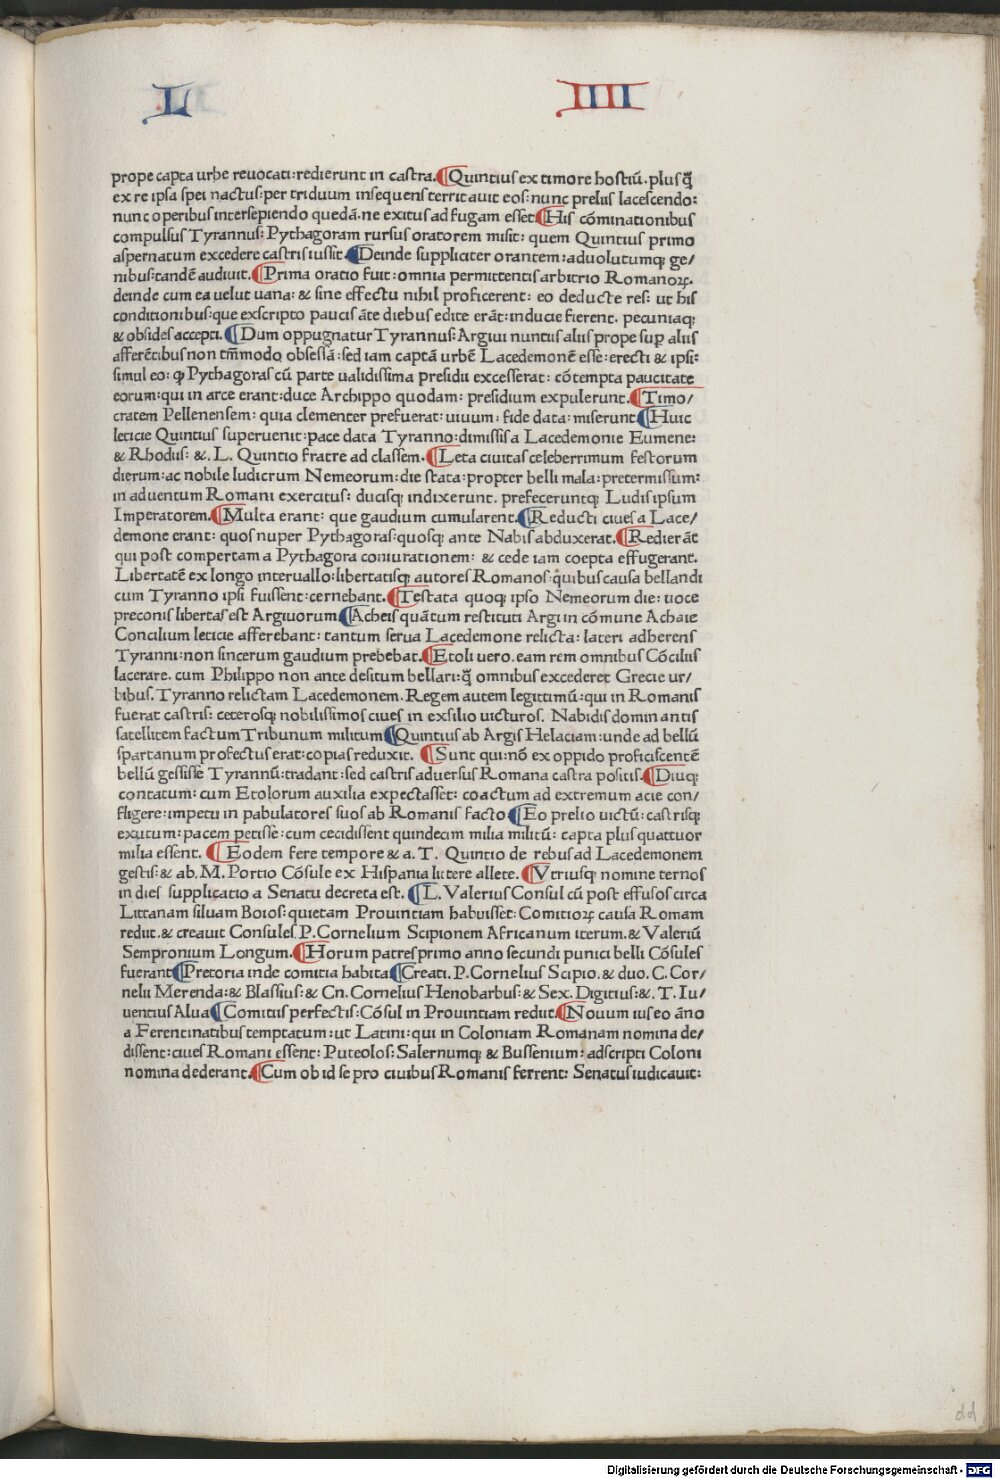 L IIII
prope capta urbe reuocati:redierunt in castra.¶Quintius ex timore hostiū.plus q̄
ex re ipsa spei nactus:per triduum insequens territauit eos:nunc preliis lacescendo:
nunc operibus intersepiendo quedā.ne exitus ad fugam esset.¶His cōminationibus
compulsus Tyrannus: Pythagoram rursus oratorem misit: quem Quintius primo
aspernatum excedere castris iussit.¶Deinde suppliciter orantem:aduolutumq; ge/
nibus:tandē audiuit.¶Prima oratio fuit: omnia permittentis arbitrio Romanoꝝ.
deinde cum ea uelut uana: & sine effectu nihil proficerent: eo deducte res: ut his
conditionibus:que exscripto paucis āte diebus edite erāt:inducie fierent. pecuniaq;
& obsides accepti.¶Dum oppugnatur Tyrannus:Argiui nuntiis aliis prope sup̱ aliis
afferētibus non tm̄modo obsessā:sed iam captā urbē Lacedemonē esse:erecti & ipsi:
simul eo: ꝙ Pythagoras cū parte ualidissima presidii excesserat: cōtempta paucitate
eorum:qui in arce erant:duce Archippo quodam: presidium expulerunt.¶Timo/
cratem Pellenensem: quia clementer prefuerat:uiuum:fide data:miserunt¶Huic
leticie Quintius superuenit:pace data Tyranno:dimissis a Lacedemonie Eumene:
& Rhodiis: &. L. Quintio fratre ad classem.¶Leta ciuitas celeberrimum festorum
dierum:ac nobile ludicrum Nemeorum:die stata:propter belli mala:pretermissum:
in aduentum Romani exercitus: ducisq; indixerunt. prefeceruntq; Ludis ipsum
Imperatorem.¶Multa erant: que gaudium cumularent.¶Reducti ciues a Lace/
demone erant: quos nuper Pythagoras:quosq; ante Nabis abduxerat.¶Redierāt
qui post compertam a Pythagora coniurationem: & cede iam coepta effugerant.
Libertatē ex longo interuallo:libertatisq; autores Romanos:quibus causa bellandi
cum Tyranno ipsi fuissent:cernebant.¶Testata quoq; ipso Nemeorum die: uoce
preconis libertas est Argiuorum¶Acheis quātum restituti Argi in cōmune Achaie
Concilium leticie afferebant: tantum serua Lacedemone relicta: lateri adherens
Tyranni:non sincerum gaudium prebebat.¶Etoli uero.eam rem omnibus Cōciliis
lacerare. cum Philippo non ante desitum bellari:q̄ omnibus excederet Grecie ur/
bibus. Tyranno relictam Lacedemonem. Regem autem legittimū: qui in Romanis
fuerat castris: ceterosq; nobilissimos ciues in exsilio uicturos. Nabidis dominantis
satellitem factum Tribunum militum¶Quintius ab Argis Helaciam:unde ad bellū
spartanum profectus erat:copias reduxit. ¶Sunt qui:nō ex oppido proficiscentē
bellū gessisse Tyrannū:tradant:sed castris aduersus Romana castra positis.¶Diuq;
contatum: cum Etolorum auxilia expectasset: coactum ad extremum acie con/
fligere:impetu in pabulatores suos ab Romanis facto¶Eo prelio uictū:castrisq;
exutum:pacem petisse:cum cecidissent quindecim milia militū: capta plus quattuor
milia essent. ¶Eodem fere tempore & a. T. Quintio de rebus ad Lacedemonem
gestis: & ab. M. Portio Cōsule ex Hispania littere allete. ¶Vtriusq; nomine ternos
in dies supplicatio a Senatu decreta est. ¶L. Valerius Consul cū post effusos circa
Littanam siluam Boios: quietam Prouintiam habuisset: Comitioꝝ causa Romam
rediit.& creauit Consules.P.Cornelium Scipionem Africanum iterum.& Valeriū
Sempronium Longum.¶Horum patres primo anno secundi punici belli Cōsules
fuerant¶Pretoria inde comitia habita¶Creati.P.Cornelius Scipio.& duo.C.Cor/
nelii Merenda:& Blassius:& Cn.Cornelius Henobarbus:& Sex.Digitius:&.T.Iu/
uentius Alua¶Comitiis perfectis:Cōsul in Prouintiam rediit.¶Nouum ius eo āno
a Ferentinatibus temptatum:ut Latini: qui in Coloniam Romanam nomina de/
dissent:ciues Romani essent: Puteolos:Salernumq; & Bussenium: adscripti Coloni
nomina dederant.¶Cum ob id se pro ciuibus Romanis ferrent: Senatus iudicauit:
dd
Digitalisierung gefördert durch die Deutsche Forschungsgemeinschaft - DFG